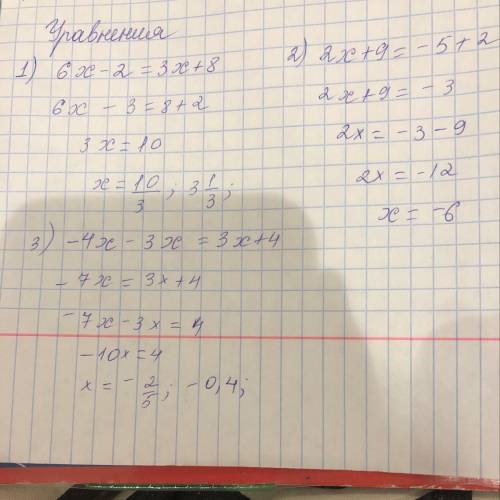 Уравнения
1) 6x - 2 = 3x + 8
6x - 3 = 8 + 2
3x = 10
x = 10/3 ; 3 1/3 ;
2) 2x + 9 = -5 + 2
2x + 9 = -3
2x = -3 - 9
2x = -12
x = -6
3) -4x - 3x = 3x + 4
-7x = 3x + 4
-7x - 3x = 4
-10x = 4
x = - 2/5 ; -0,4 ;